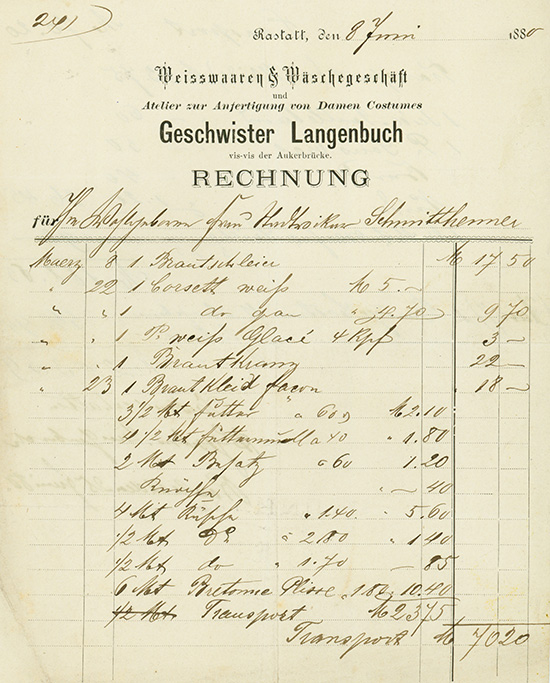 241
Rastatt, den 8 Juni 1880
Weisswaaren & Wäschegeschäft
und
Atelier zur Anfertigung von Damen Costumes
Geschwister Langenbuch
vis-vis der Ankerbrücke.
RECHNUNG
für Ihr Wohlgeboren Frau Stadtvikar Schmitthenner
Maerz 8 1 Brautschleier M 17 50
" 22 1 Corsett weiß M 5.–
" " 1 do grau " 4.70 9 70
" " 1 P. weiß Glacé 4 Kpf 3 –
" " 1 Brautkranz 22 –
" 23 1 Brautkleid facon 18 –
3 1/2 Mt Futter a 60 M 2.10
4 1/2 Mt a 40 " 1.80
2 Mt Besatz a 60 1.20
" – 40
4 Mt Rüsche " 1.40 " 5.60
1/2 Mt Do a 2 80 " 1 40
1/2 Mt do " 1.70 – 85
6 Mt Bretonne Plisse 10.40
1/2 Mt Transport M 23 75
Transport M 70 20